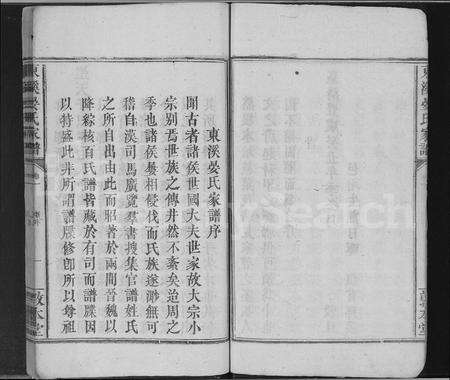 東溪晏氏家譜序
聞古者諸侯世國大夫世家故大宗小
宗別焉世族之傳井然不紊矣迨周之
季也諸侯曡相侵伐而氏族遂渺無可
稽自漢司馬廣覽羣書搜集官譜姓氏
之所自出由此而昭著於兩間晉魏以
降綜核百氏譜皆藏於有司而譜牒因
以特盛此非所謂譜牒修卽所以尊祖
東溪晏氏家譜
敦本堂
東溪晏氏家譜
敦本堂